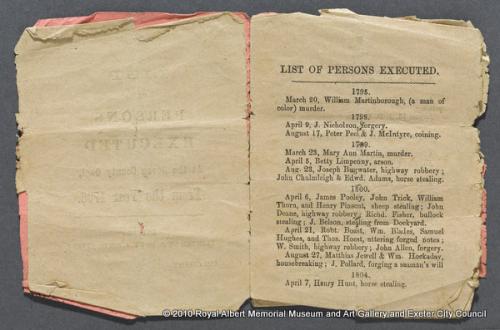 LIST OF PERSONS EXECUTED.
1795.
March 20, William Martinborough, (a man of
color) murder.
1798.
April 9, J. Nicholson, forgery.
August 17, Peter Peel & J. McIntyre, coining.
1799.
March 23, Mary Ann Martin, murder.
April 5, Betty Limpenny, arson.
Aug. 23, Joseph Bugwater, highway robbery;
John Chulmleigh & Edwd. Adams, horse stealing.
1800.
April 6, James Pooley, John Trick, William
Thorn, and Henry Pinsent, sheep stealing; John
Deane, highway robbery; Richd. Fisher, bullock
stealing; J. Belson, stealing from Dockyard.
April 21, Robt. Boast, Wm. Blades, Samuel
Hughes, and Thos. Horst, uttering forged notes;
W. Smith, highway robbery; John Allen, forgery.
August 27, Matthias Jewell & Wm. Hockaday,
housebreaking; J. Pollard, forging a seaman's will
1804.
April 7, Henry Hunt, horse stealing.
PERSONS
EXECUTED
© 2010 Royal Albert Memorial Museum and Art Gallery and Exeter City Council